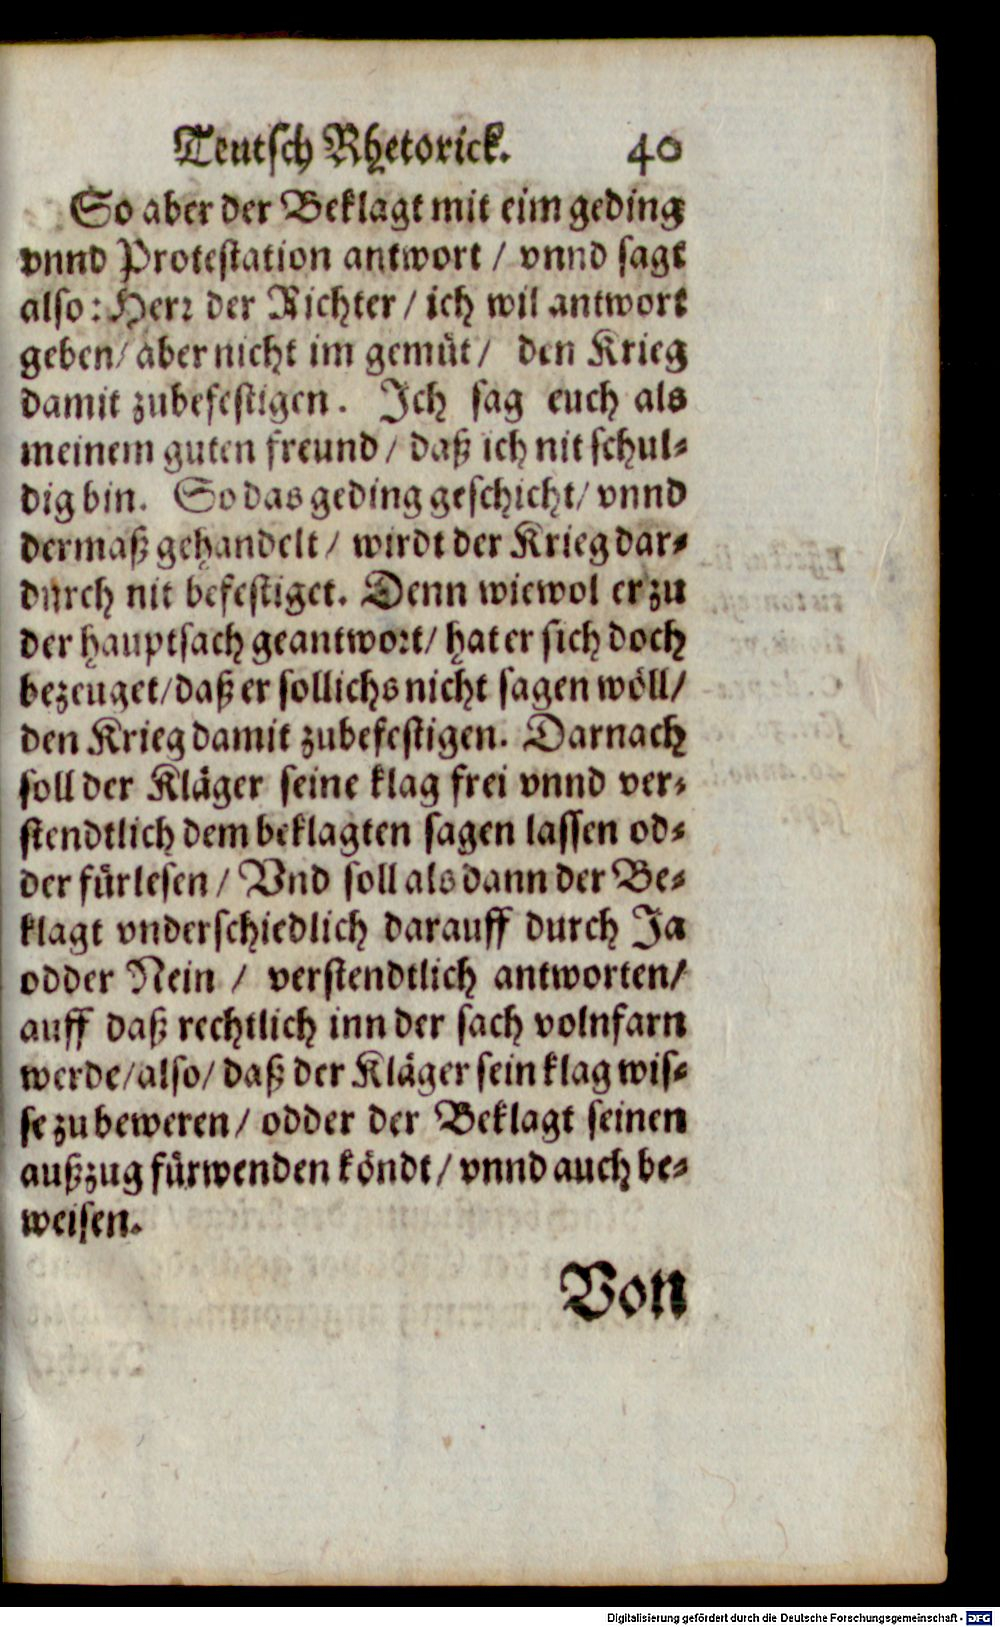 Teutsch Rhetorick. 40
So aber der Beklagt mit eim geding
vnnd Protestation antwort / vnnd sagt
also: Herr der Richter / ich wil antwort
geben/ aber nicht im gemüt / den Krieg
damit zubefestigen. Ich sag euch als
meinem guten freund / daß ich nit schul-
dig bin. So das geding geschicht/ vnnd
dermaß gehandelt / wirdt der Krieg dar-
durch nit befestiget. Denn wiewol er zu
der hauptsach geantwort/ hat er sich doch
bezeuget/ daß er sollichs nicht sagen wöll/
den Krieg damit zubefestigen. Darnach
soll der Kläger seine klag frei vnnd ver-
stendtlich dem beklagten sagen lassen od-
der fürlesen / Vnd soll als dann der Be-
klagt vnderschiedlich darauff durch Ja
odder Nein / verstendtlich antworten/
auff daß rechtlich inn der sach volnfarn
werde/ also/ daß der Kläger sein klag wis-
se zu beweren / odder der Beklagt seinen
außzug fürwenden köndt / vnnd auch be-
weisen.
Von
Digitalisierung gefördert durch die Deutsche Forschungsgemeinschaft - DFG